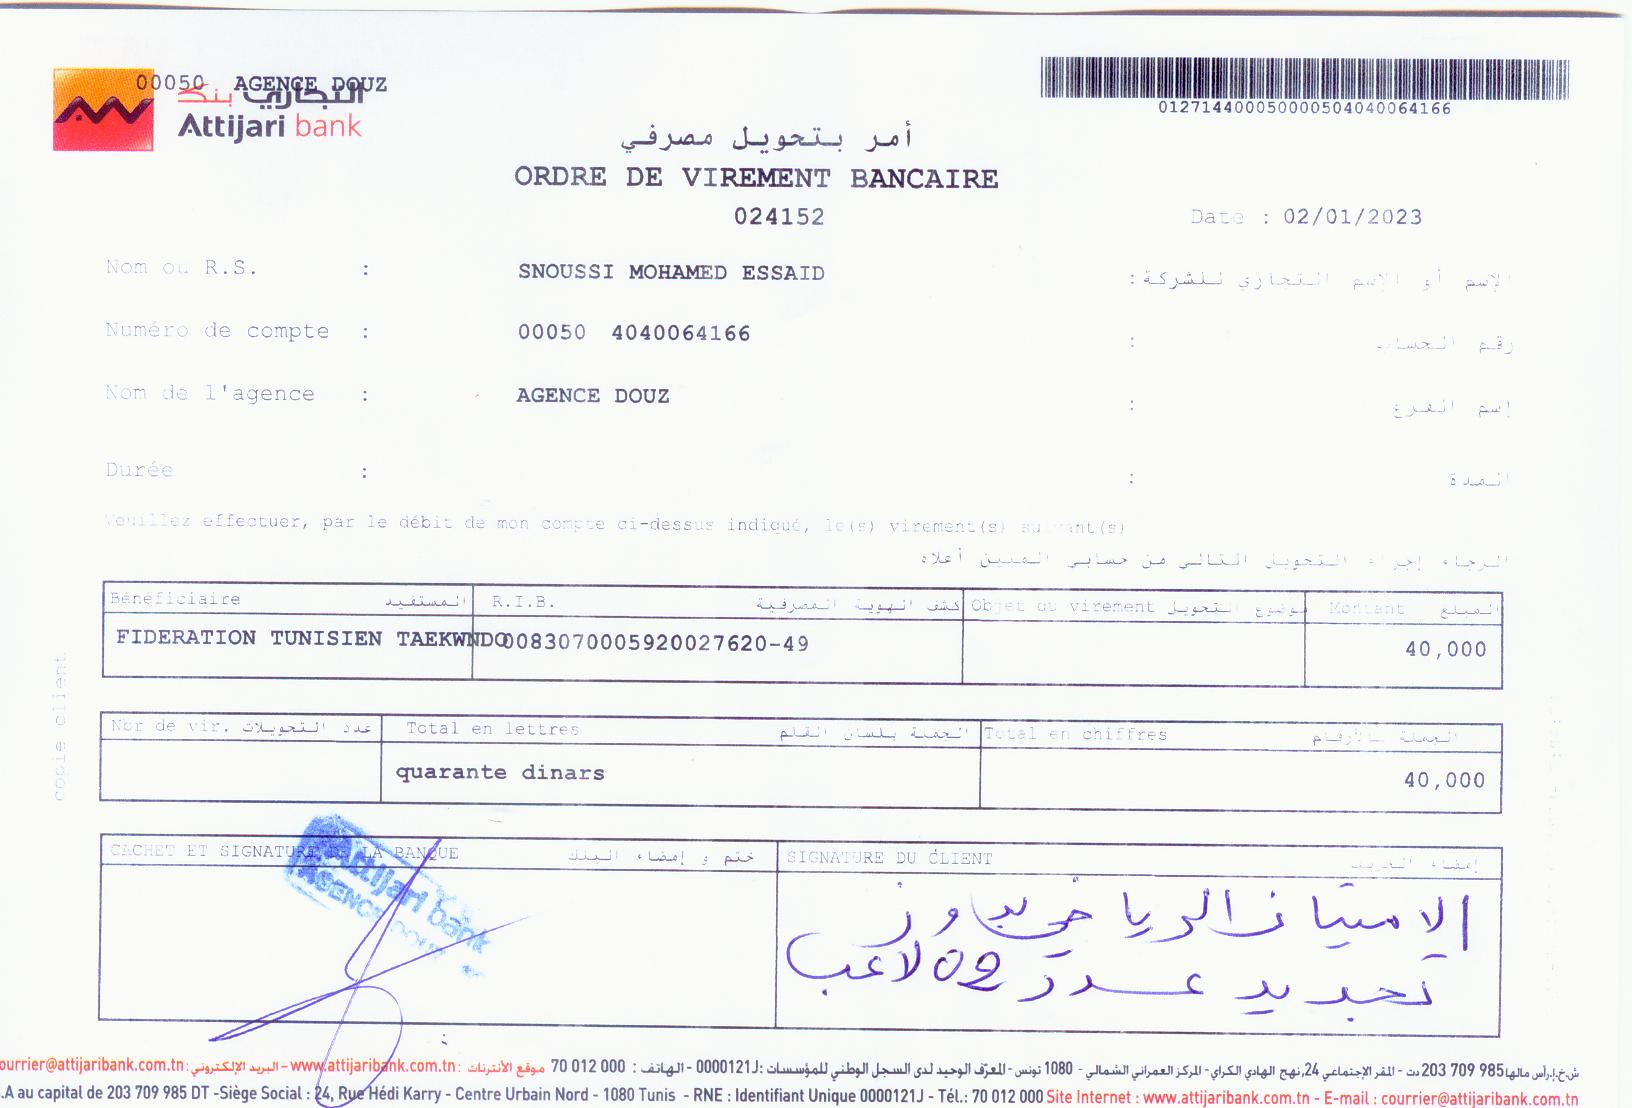 00050 AGENCE DOUZ
التجاري بنك
Attijari bank
01271440005000050404006416​6
أمر بتحويل مصرفي
ORDRE DE VIREMENT BANCAIRE
024152
Date : 02/01/2023
Nom ou R.S. : SNOUSSI MOHAMED ESSAID الإسم أو الإسم التجاري للشركة :
Numéro de compte : 00050 4040064166 رقم الحساب :
Nom de l'agence : AGENCE DOUZ إسم الفرع :
Durée : المدة :
Veuillez effectuer, par le débit de mon compte ci-dessus indiqué, le(s) virement(s) suivant(s)
الرجاء إجراء التحويل التالي من حسابي المبين أعلاه
Bénéficiaire المستفيد R.I.B. كشف الهوية المصرفية Objet du virement موضوع التحويل Montant المبلغ
FIDERATION TUNISIEN TAEKWNDO 0083070005920027620-49 40,000
Nbr de vir. عدد التحويلات Total en lettres الجملة بلسان القلم Total en chiffres الجملة بالأرقام
quarante dinars 40,000
CACHET ET SIGNATURE DE LA BANQUE ختم و إمضاء البنك SIGNATURE DU CLIENT إمضاء الحريف
Attijari bank
AGENCE DOUZ
الامتياز الرياضي بدوز
تجديد عدد 02 لاعب
copie client
ش.خ.إ.رأس مالها 203 709 985 دت - المقر الإجتماعي 24, نهج الهادي الكراي - المركز العمراني الشمالي - 1080 تونس - المعرّف الوحيد لدى السجل الوطني للمؤسسات : 0000121J - الهاتف : 70 012 000 موقع الأنترنات : www.attijaribank.com.tn - البريد الإلكتروني : ourrier@attijaribank.com.tn
.A au capital de 203 709 985 DT -Siège Social : 24, Rue Hédi Karry - Centre Urbain Nord - 1080 Tunis - RNE : Identifiant Unique 0000121J - Tél.: 70 012 000 Site Internet : www.attijaribank.com.tn - E-mail : courrier@attijaribank.com.tn